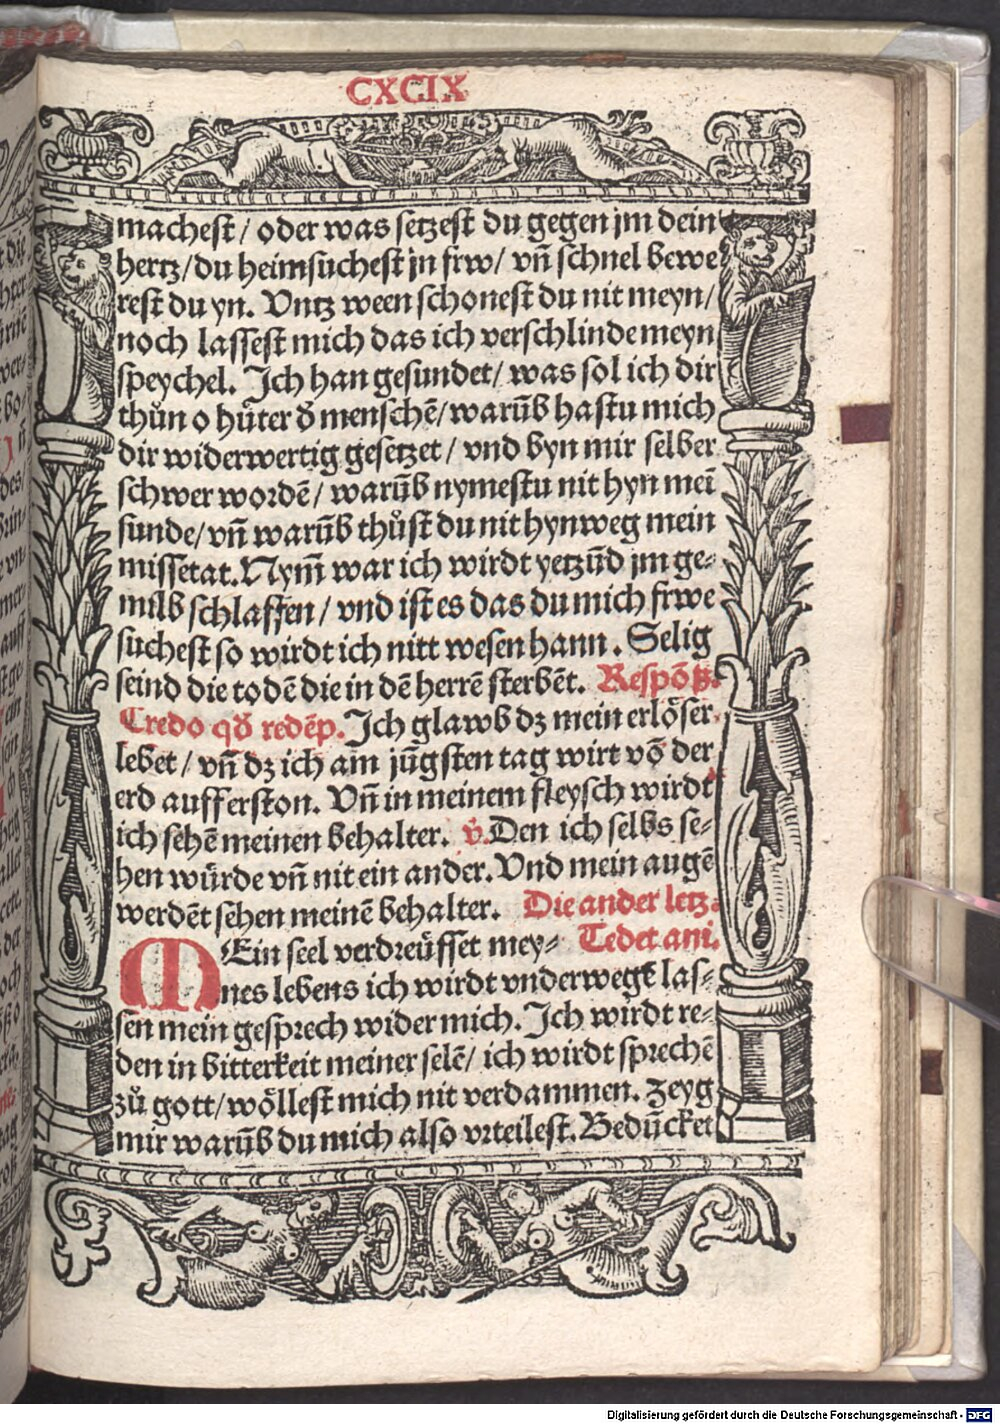 CXCIX
machest / oder was setzest du gegen jm dein
hertz / du heimsůchest jn frw / vñ schnel bewe
rest du yn. Vntz ween schonest du nit meyn /
noch lassest mich das ich verschlinde meyn
speychel. Ich han gesundet / was sol ich dir
thůn o hůter d̄ menschē / warūb hastu mich
dir widerwertig gesetzet / vnd byn mir selber
schwer wordē / warūb nymestu nit hyn mei̅
sunde / vñ warūb thůst du nit hynweg mein
missetat. Nym̄ war ich wirdt yetzūd jm ge⸗
milb schlaffen / vnd ist es das du mich frwe
sůchest so wirdt ich nitt wesen hann. Selig
seind die todē die in dē herrē sterbēt. Respōß.
Credo qd̄ redēp. Ich glawb dz mein erlöser
lebet / vñ dz ich am jüngsten tag wirt vō der
erd aufferston. Vñ in meinem fleysch wirdt
ich sehē meinen behalter. v̄. Den ich selbs se⸗
hen würde vñ nit ein ander. Vnd mein augē
werdēt sehen meinē behalter. Die ander letz.
MEin seel verdreüsset mey⸗ Tedet ani.
nes lebens ich wirdt vnderwegē las⸗
sen mein gesprech wider mich. Ich wirdt re⸗
den in bitterkeit meiner selē / ich wirdt sprechē
zů gott / wöllest mich nit verdammen. Zeyg
mir warūb du mich also vrteilest. Bedücket
Digitalisierung gefördert durch die Deutsche Forschungsgemeinschaft - DFG